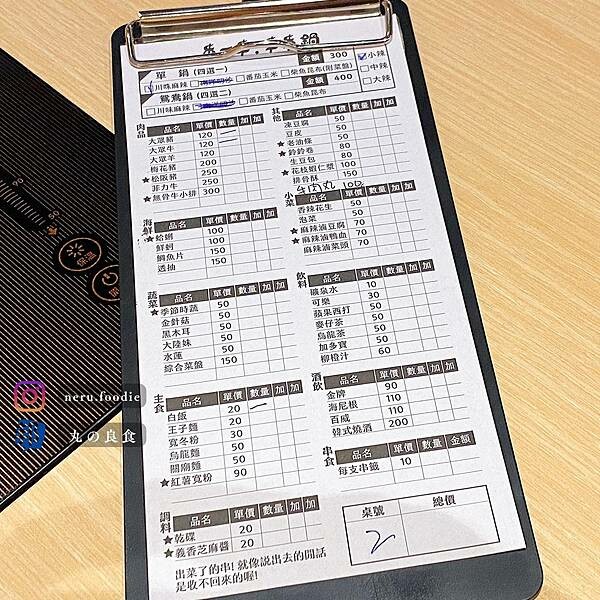 單 鍋 (四選一) 金額 300
川味麻辣 番茄玉米 柴魚昆布(附菜盤)
鴛鴦鍋 (四選二) 金額 400
川味麻辣 番茄玉米 柴魚昆布
小辣
中辣
大辣
肉品
品名 單價 數量 加 加
大眾豬 120
大眾牛 120
大眾羊 120
梅花豬 200
★松阪豬 250
菲力牛 250
★無骨牛小排 300
海鮮
品名 單價 數量 加 加
★蛤蜊 100
鮮蚵 100
鯛魚片 150
透抽 150
蔬菜
品名 單價 數量 加 加
★季節時蔬 50
金針菇 50
黑木耳 50
大陸妹 50
水蓮 50
綜合菜盤 150
主食
品名 單價 數量 加 加
白飯 20
王子麵 20
寬冬粉 30
烏龍麵 50
關廟麵 50
★紅薯寬粉 90
調料
品名 單價 數量 加 加
★乾碟 20
★義香芝麻醬 20
出菜了的串! 就像說出去的閒話
是收不回來的喔!
其他
品名 單價 數量 加 加
凍豆腐 50
豆皮 50
★老油條 50
★鈴鈴卷 80
生豆包 80
★花枝蝦仁漿 100
排骨酥 150
牛肉丸 100
小菜
品名 單價 數量 加 加
香辣花生 50
泡菜 50
★麻辣滷豆腐 70
★麻辣滷鴨血 70
麻辣滷菜頭 70
飲料
品名 單價 數量 加 加
礦泉水 10
可樂 30
蘋果西打 50
麥仔茶 50
烏龍茶 50
加多寶 50
柳橙汁 60
酒飲
品名 單價 數量 加 加
金牌 90
海尼根 110
百威 110
韓式燒酒 200
串食
品名 單價 數量 金額
每支串籤 10
桌號 總價
2
neru.foodie
丸の良食